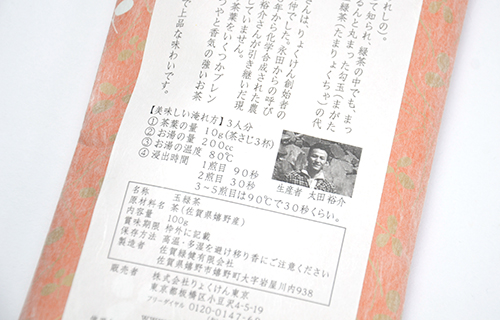 れしの)。
て知られ、緑茶の中でも、まっ
るんと丸まった勾玉(まがた
緑茶(たまりょくちゃ)の代
さんは、りょくけん創始者の
仲でした。永田からの呼び
年から化学合成された農
していません。
裕介さんが引き継いだ現
茶葉をいくつかブレン
つやと香気の強いお茶
で上品な味わいです。
【美味しい淹れ方】3人分
① 茶葉の量 10g(茶さじ3杯)
② お湯の量 200cc
③ お湯の温度 80℃
④ 浸出時間 1煎目 90秒
2煎目 30秒
3～5煎目は90℃で30秒くらい。
生産者 太田 裕介
名称 玉緑茶
原材料名 茶(佐賀県嬉野産)
内容量 100g
賞味期限 枠外に記載
保存方法 高温・多湿を避け移り香にご注意ください
製造者 佐賀緑健有限会社
佐賀県嬉野市嬉野町大字岩屋川内938
販売者 株式会社りょくけん東京
東京都板橋区小豆沢4-5-19
フリーダイヤル 0120-0147-6